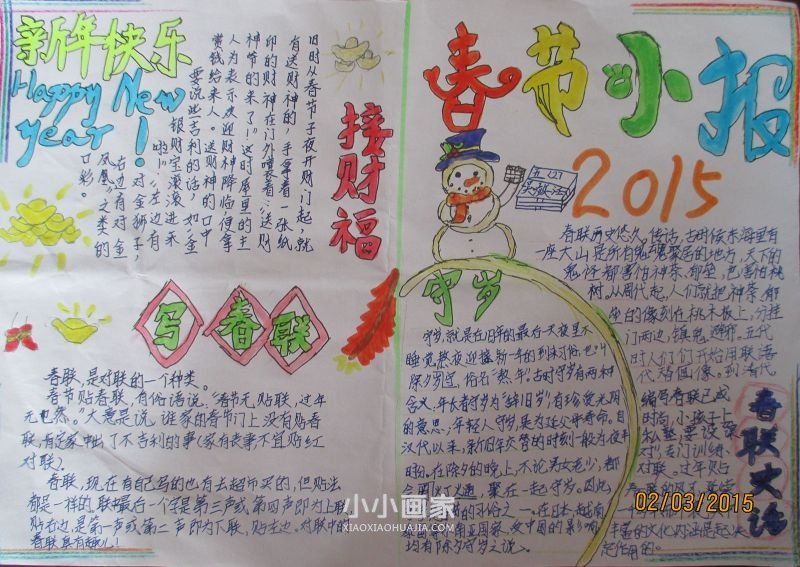 新年快乐
Happy New
year!
春节小报
2015
接财福
旧时从春节子夜开财门起，就
有送财神的，手拿着一张纸
印的财神在门外嚷着：“送财
神爷的来了！”这时屋里的主
人为表示欢迎财神降临便拿
赏钱给来人。送财神的口中
要说些吉利的话，如“金
银财宝滚滚进来
啦！”“左边有
对金狮子，
右边有对金
凤凰”之类的
口彩。
写春联
春联，是对联的一个种类。
春节贴春联，有俗话说：“春节无贴联，过年
无屯然。”大意是说，谁家的春节门上没有贴春
联，肯定家中出了不吉利的事（家有丧事不宜贴红
对联）。
春联，现在有自己写的也有去超市买的，但贴法
都是一样的，联中最后一个字是第三声或第四声即为上联，
贴右边，是第一声或第二声即为下联，贴左边。对联中
春联真有趣儿！
守岁
守岁，就是在旧年的最后一天夜里不
睡觉，熬夜迎接新一年的到来的习俗，也叫
除夕守岁，俗名“熬年”。古时守岁有两种
含义：年长者守岁为“辞旧岁”，有珍爱光阴
的意思；年轻人守岁，是为延父母寿命。自
汉代以来，新旧年交替的时刻一般为夜半
时分。在除夕的晚上，不论男女老少，都
灯火通，聚在一起守岁。因此
的习俗之一。在日本、越南
国家，受中国的影响
均有除夕守岁之说。
春联大话
春联历史悠久。传说，古时候东海里有
一座大山是所有鬼魂聚居的地方，天下的
鬼怪都害怕神荼、郁垒，也害怕桃
树。从周代起，人们就把神荼、郁
垒的像刻在桃木板上，分挂
门两边，镇鬼避邪。五代
时人们开始用联语
代替值像。到清代
编写春联已成
时尚，小孩子上
对”专门训练
对联。过年贴
丰富的文化内涵是起决
起作用的。
小小画家
XIAOXIAOHUAJIA.COM
02/03/2015